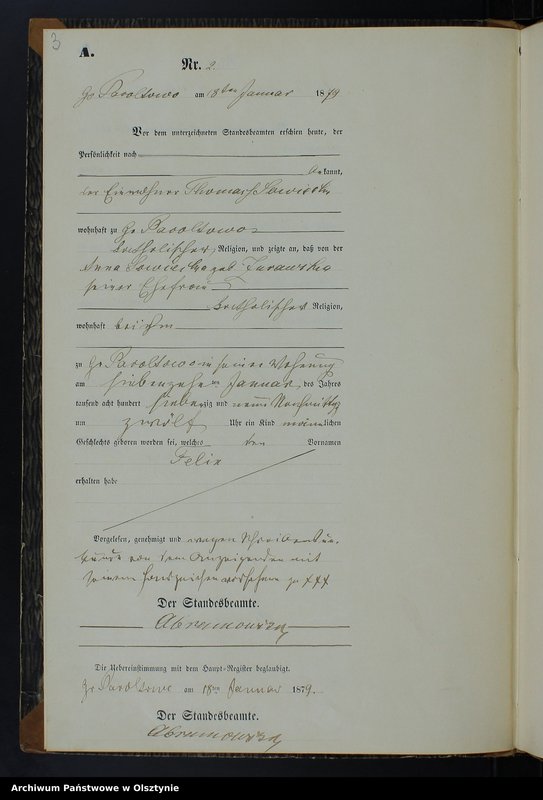 3
A.
Nr. 2.
Gr. Pacoltowo am 18ten Januar 1879
Vor dem unterzeichneten Standesbeamten erschien heute, der
Persönlichkeit nach
bekannt,
der Einwohner Thomas
wohnhaft zu Gr. Pacoltowo
katholischer Religion, und zeigte an, daß von der
Anna geb.
seiner Ehefrau
katholischer Religion,
wohnhaft bei ihm
zu Gr. Pacoltowo in seiner Wohnung
am siebenzehnten Januar des Jahres
tausend acht hundert siebenzig und neun Nachmittags
um zwölf Uhr ein Kind männlichen
Geschlechts geboren worden sei, welches den Vornamen
Felix
erhalten habe
Vorgelesen, genehmigt und wegen Schreibensun-
kunde von dem Anzeigenden mit
seinem Handzeichen versehen +++
Der Standesbeamte.
Die Uebereinstimmung mit dem Haupt-Register beglaubigt.
Gr. Pacoltowo am 18ten Januar 1879.
Der Standesbeamte.
Archiwum Państwowe w Olsztynie